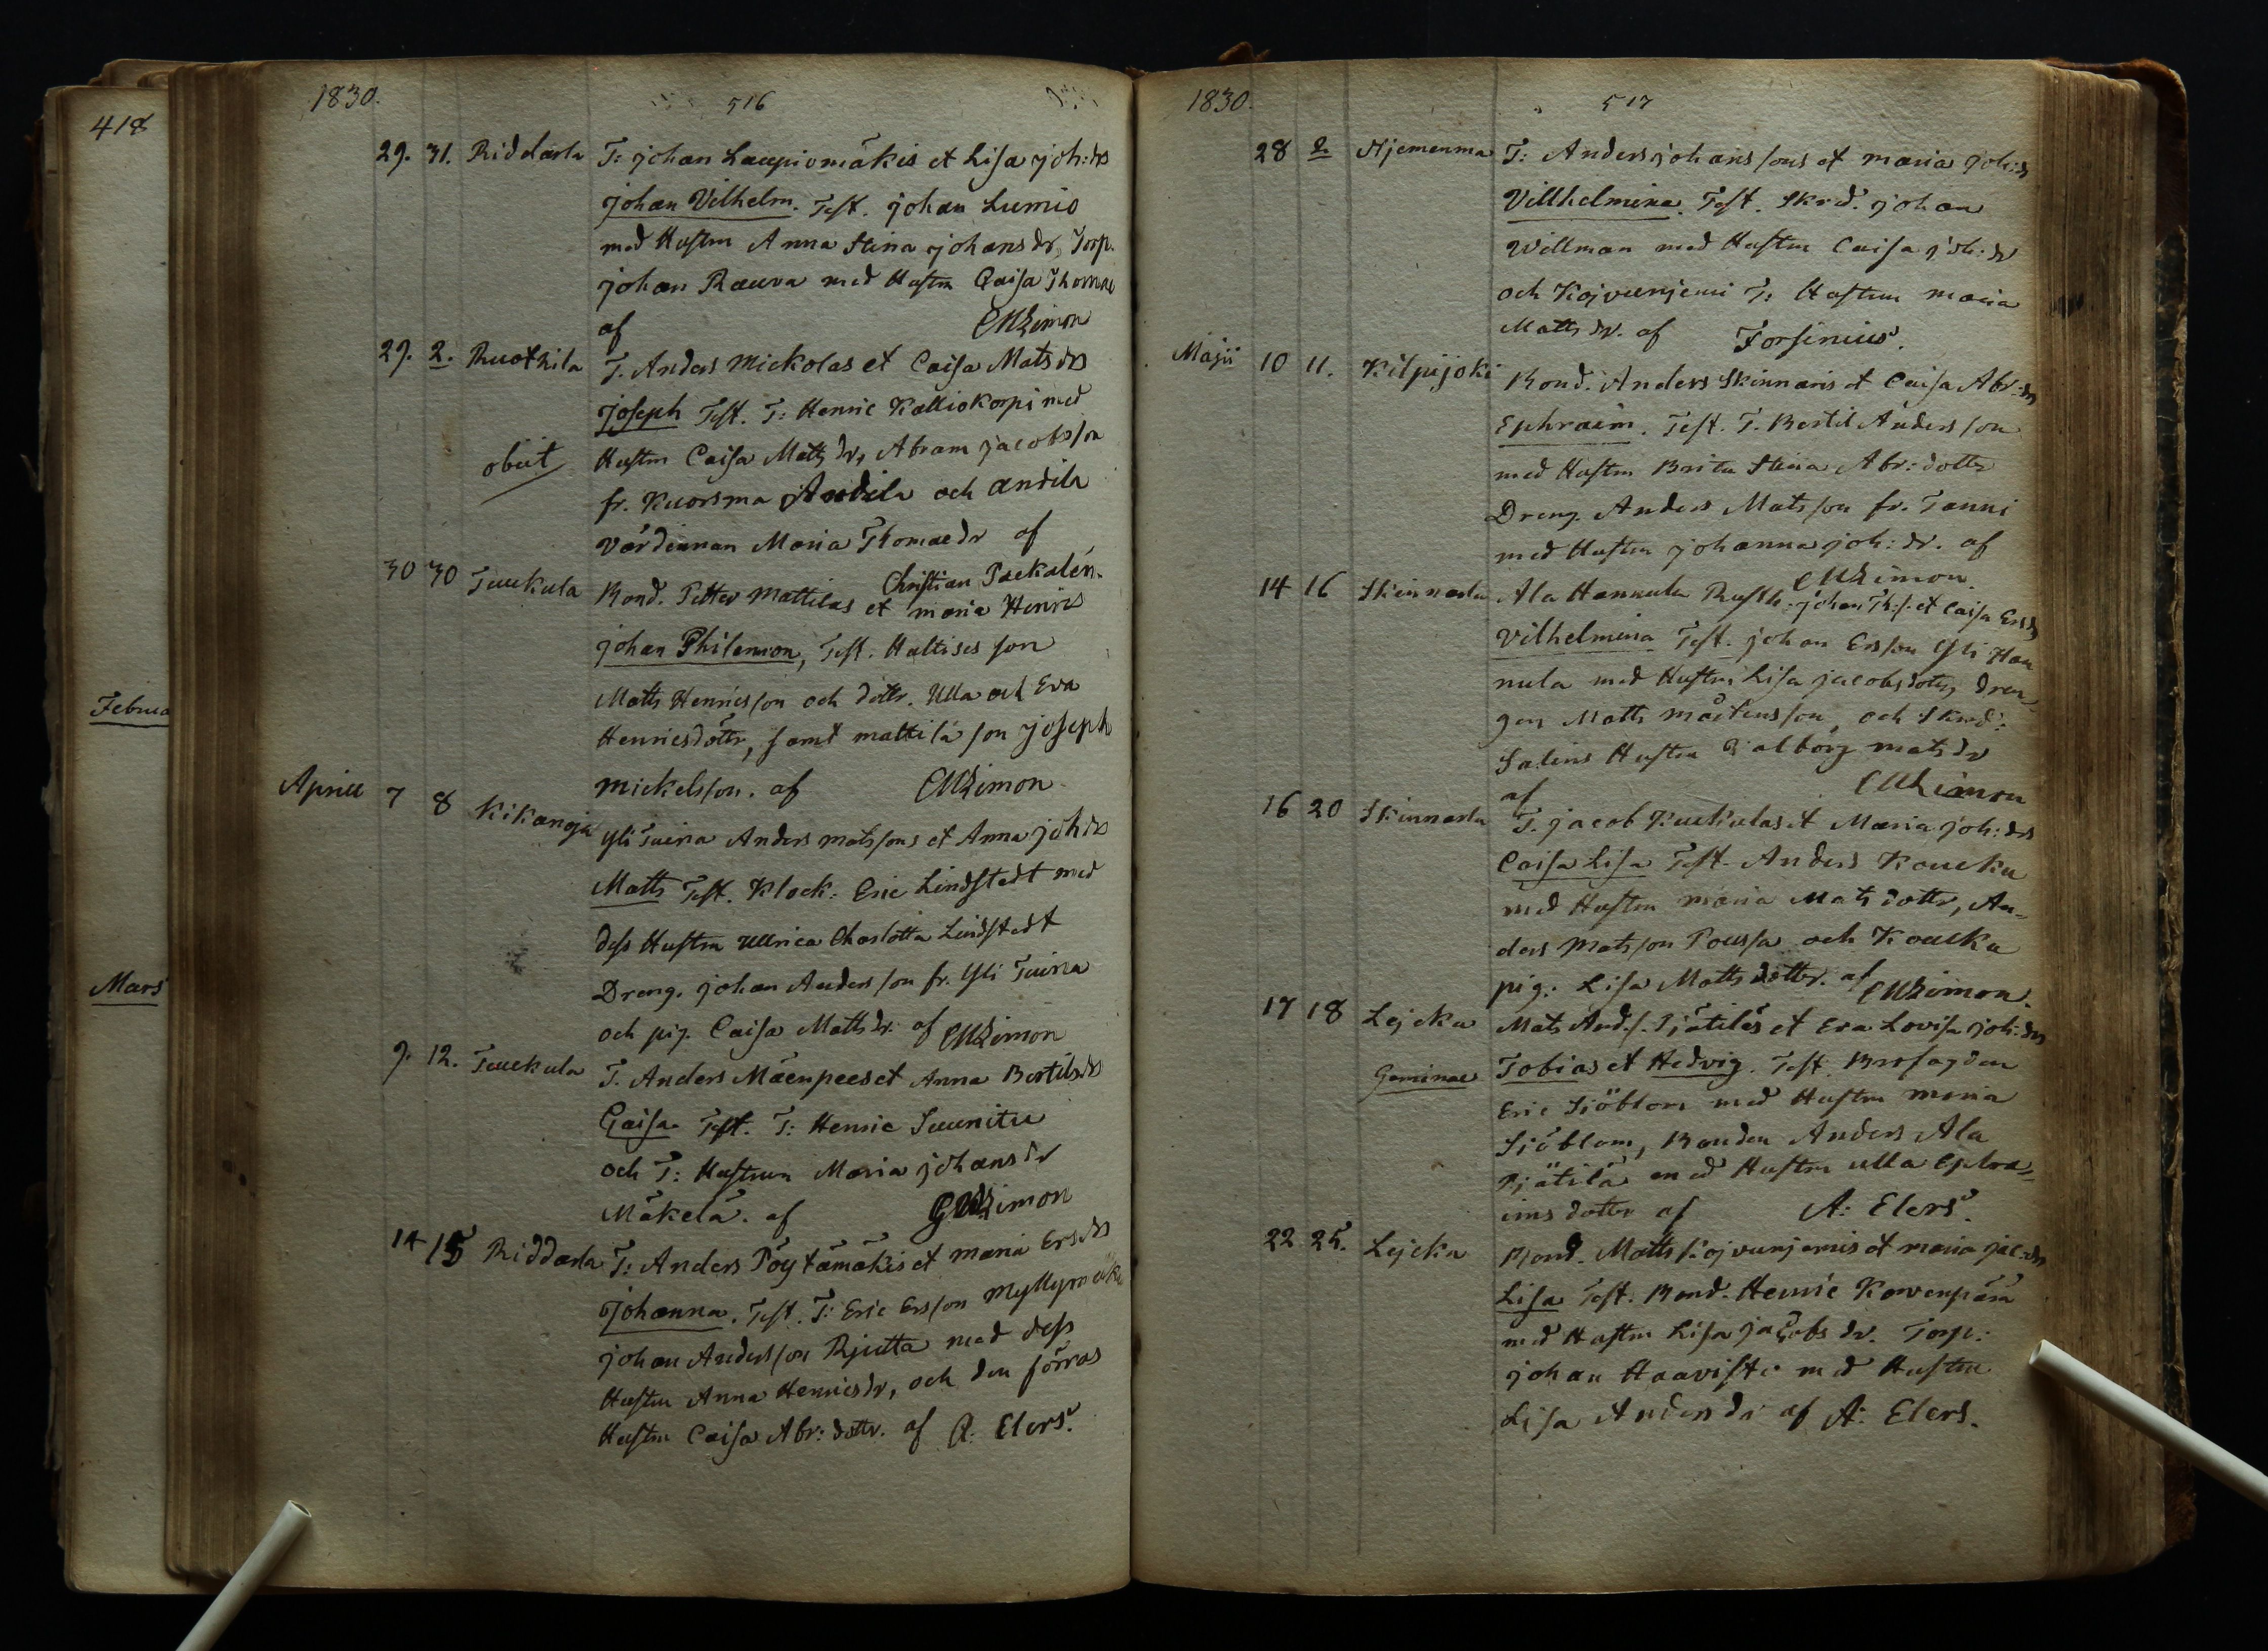 418
Februa
Mars
1830.
516
29. 31. Riddarla T: johan Laupiomäkis et Lisa joh:drs
johan Vilhelm. Test. johan Lumio
med Hustru Anna Stina johans dr, Torp.
johan Rauva med Hustru Caisa Thomae
af CMLimon
29. 2. Ruothila T. Anders Mickolas et Caisa Mats drs
Joseph Test. T: Henric Kalliokorpi med
obiit Hustru Caisa Matts dr, Abram jacobsson
fr. Kuorsma Andila och andila
Värdinnan Maria Thomaedr af
Christian Packalén.
30 30 Tuukula Bond. Petter Mattilas et maria Henrics
johan Philemon, Test. Haltises son
Matts Henricsson och dottr. Ulla och Eva
Henricsdöttr, samt mattila son joseph
mickelsson. af CMLimon
Aprill 7 8 Kikanoja Yli Tuina Anders matssons et Anna joh drs
Matts Test. Klock: Eric Lindstedt med
dess Hustru Ullrica Charlotta Lindstedt
Dreng. johan Andersson fr. Yli Tuina
och pig. Caisa Matts dr. af CMLimon
9. 12. Tuukula T. Anders Mäenpees et Anna Bertils drs
Caisa Test. T: Henric Suunitu
och T: Hustrun Maria johans dr
Mäkelä. af CMLimon
14 15 Riddarla T: Anders Pöytämäkis et maria Ers drs
Johanna. Test. T: Eric Ersson Myllymäki
johan Andersson Rjutta med dess
Hustru Anna Henricsdr, och den förras
Hustru Caisa Abr: dottr. af A: Elers.
1830.
517
28 2 Njemenma T: Anders johans sons et maria joh:drs
Villhelmina. Test. Skrd. johan
Willman med Hustru Caisa joh: dr
och Kojvunjemi T: Hustrun maria
Matts dr. af Forsenius.
Majii 10 11. Kilpijoki Bond. Anders Skinnaris et Caisa Abr:drs
Ephraim. Test. T. Bertil Andersson
med Hustru Brita Stina Abr: dottr
Dreng. Anders Matsson fr. Tanni
med Hustru johanna joh: dr. af
CMLimon
14 16 Skinnarla Ala Hannula Rusth. johan Th:s: et Caisa Ers drs
Vilhelmina Test. johan Ersson Yli Han
nula med Hustru Lisa jacobsdottr, dren-
gen Matts mårtensson, och Skrd:
Salins Hustru Valborg mats dr
af CMLimon
16 20 Skinnarla T. jacob Kuckulas et Maria joh: drs
Caisa Lisa Test. Anders Koucku
med Hustru maria Mats dottr, An-
ders Matsson Poussa och Koucku
pig. Lisa Matts dottr. af CMLimon.
17 18 Lejcku Mats And.s. Pjätiläs et Eva Lovisa joh:drs
Geminae Tobias et Hedvig. Test. Brofogden
Eric Sjöblom med Hustru maria
Sjöblom, Bonden Anders Ala
Pjätilä med Hustru Ulla Ephra-
ims dotter af A: Elers.
22 25. Lejcku Bond. Matts Kojvunjemis et maria jac:drs
Lisa Test. Bond. Henric Korvenpää
med Hustru Lisa jacobs dr. Torp:
johan Haavisto med Hustru
Lisa Anders dr af A: Elers.